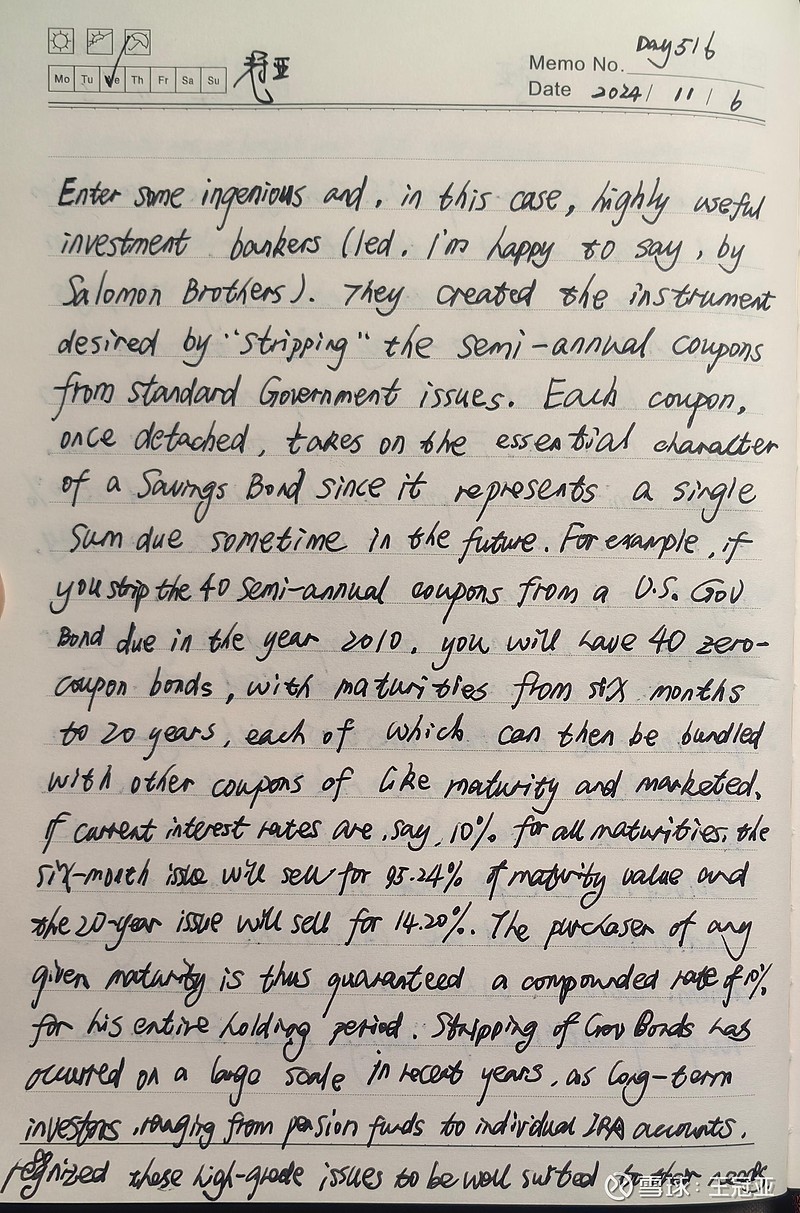 Day 516
Memo No.
Mo Tu We Th Fr Sa Su
冠亚
Date 2024 / 11 / 6
Enter some ingenious and, in this case, highly useful
investment bankers (led, I'm happy to say, by
Salomon Brothers). They created the instrument
desired by "stripping" the semi-annual coupons
from standard Government issues. Each coupon,
once detached, takes on the essential character
of a Savings Bond since it represents a single
sum due sometime in the future. For example, if
you strip the 40 Semi-annual coupons from a U.S. Gov
Bond due in the year 2010, you will have 40 zero-
coupon bonds, with maturities from six months
to 20 years, each of which can then be bundled
with other coupons of like maturity and marketed.
If current interest rates are, say, 10% for all maturities, the
six-month issue will sell for 95.24% of maturity value and
the 20-year issue will sell for 14.20%. The purchaser of any
given maturity is thus guaranteed a compounded rate of 10%
for his entire holding period. Stripping of Gov Bonds has
occurred on a large scale in recent years, as long-term
investors, ranging from pension funds to individual IRA accounts,
recognized these high-grade issues to be well suited to their needs
雪球：王冠亚